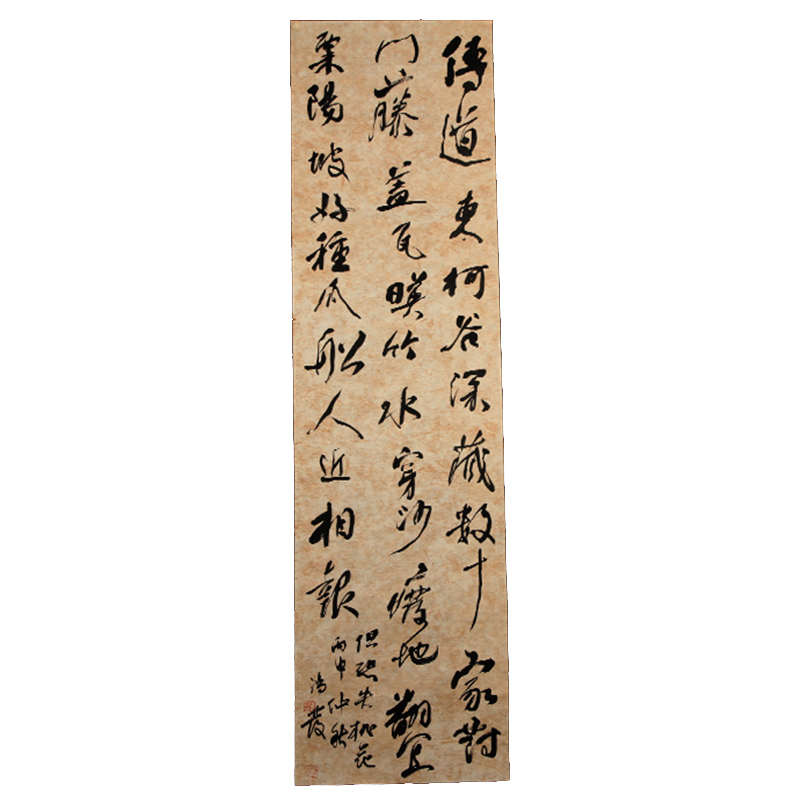 傳道東柯谷深藏數十家對
門藤蓋瓦暎竹水穿沙瘦地翻宜
粟陽坡好種瓜船人近相報
但恐失桃花
丙申仲秋